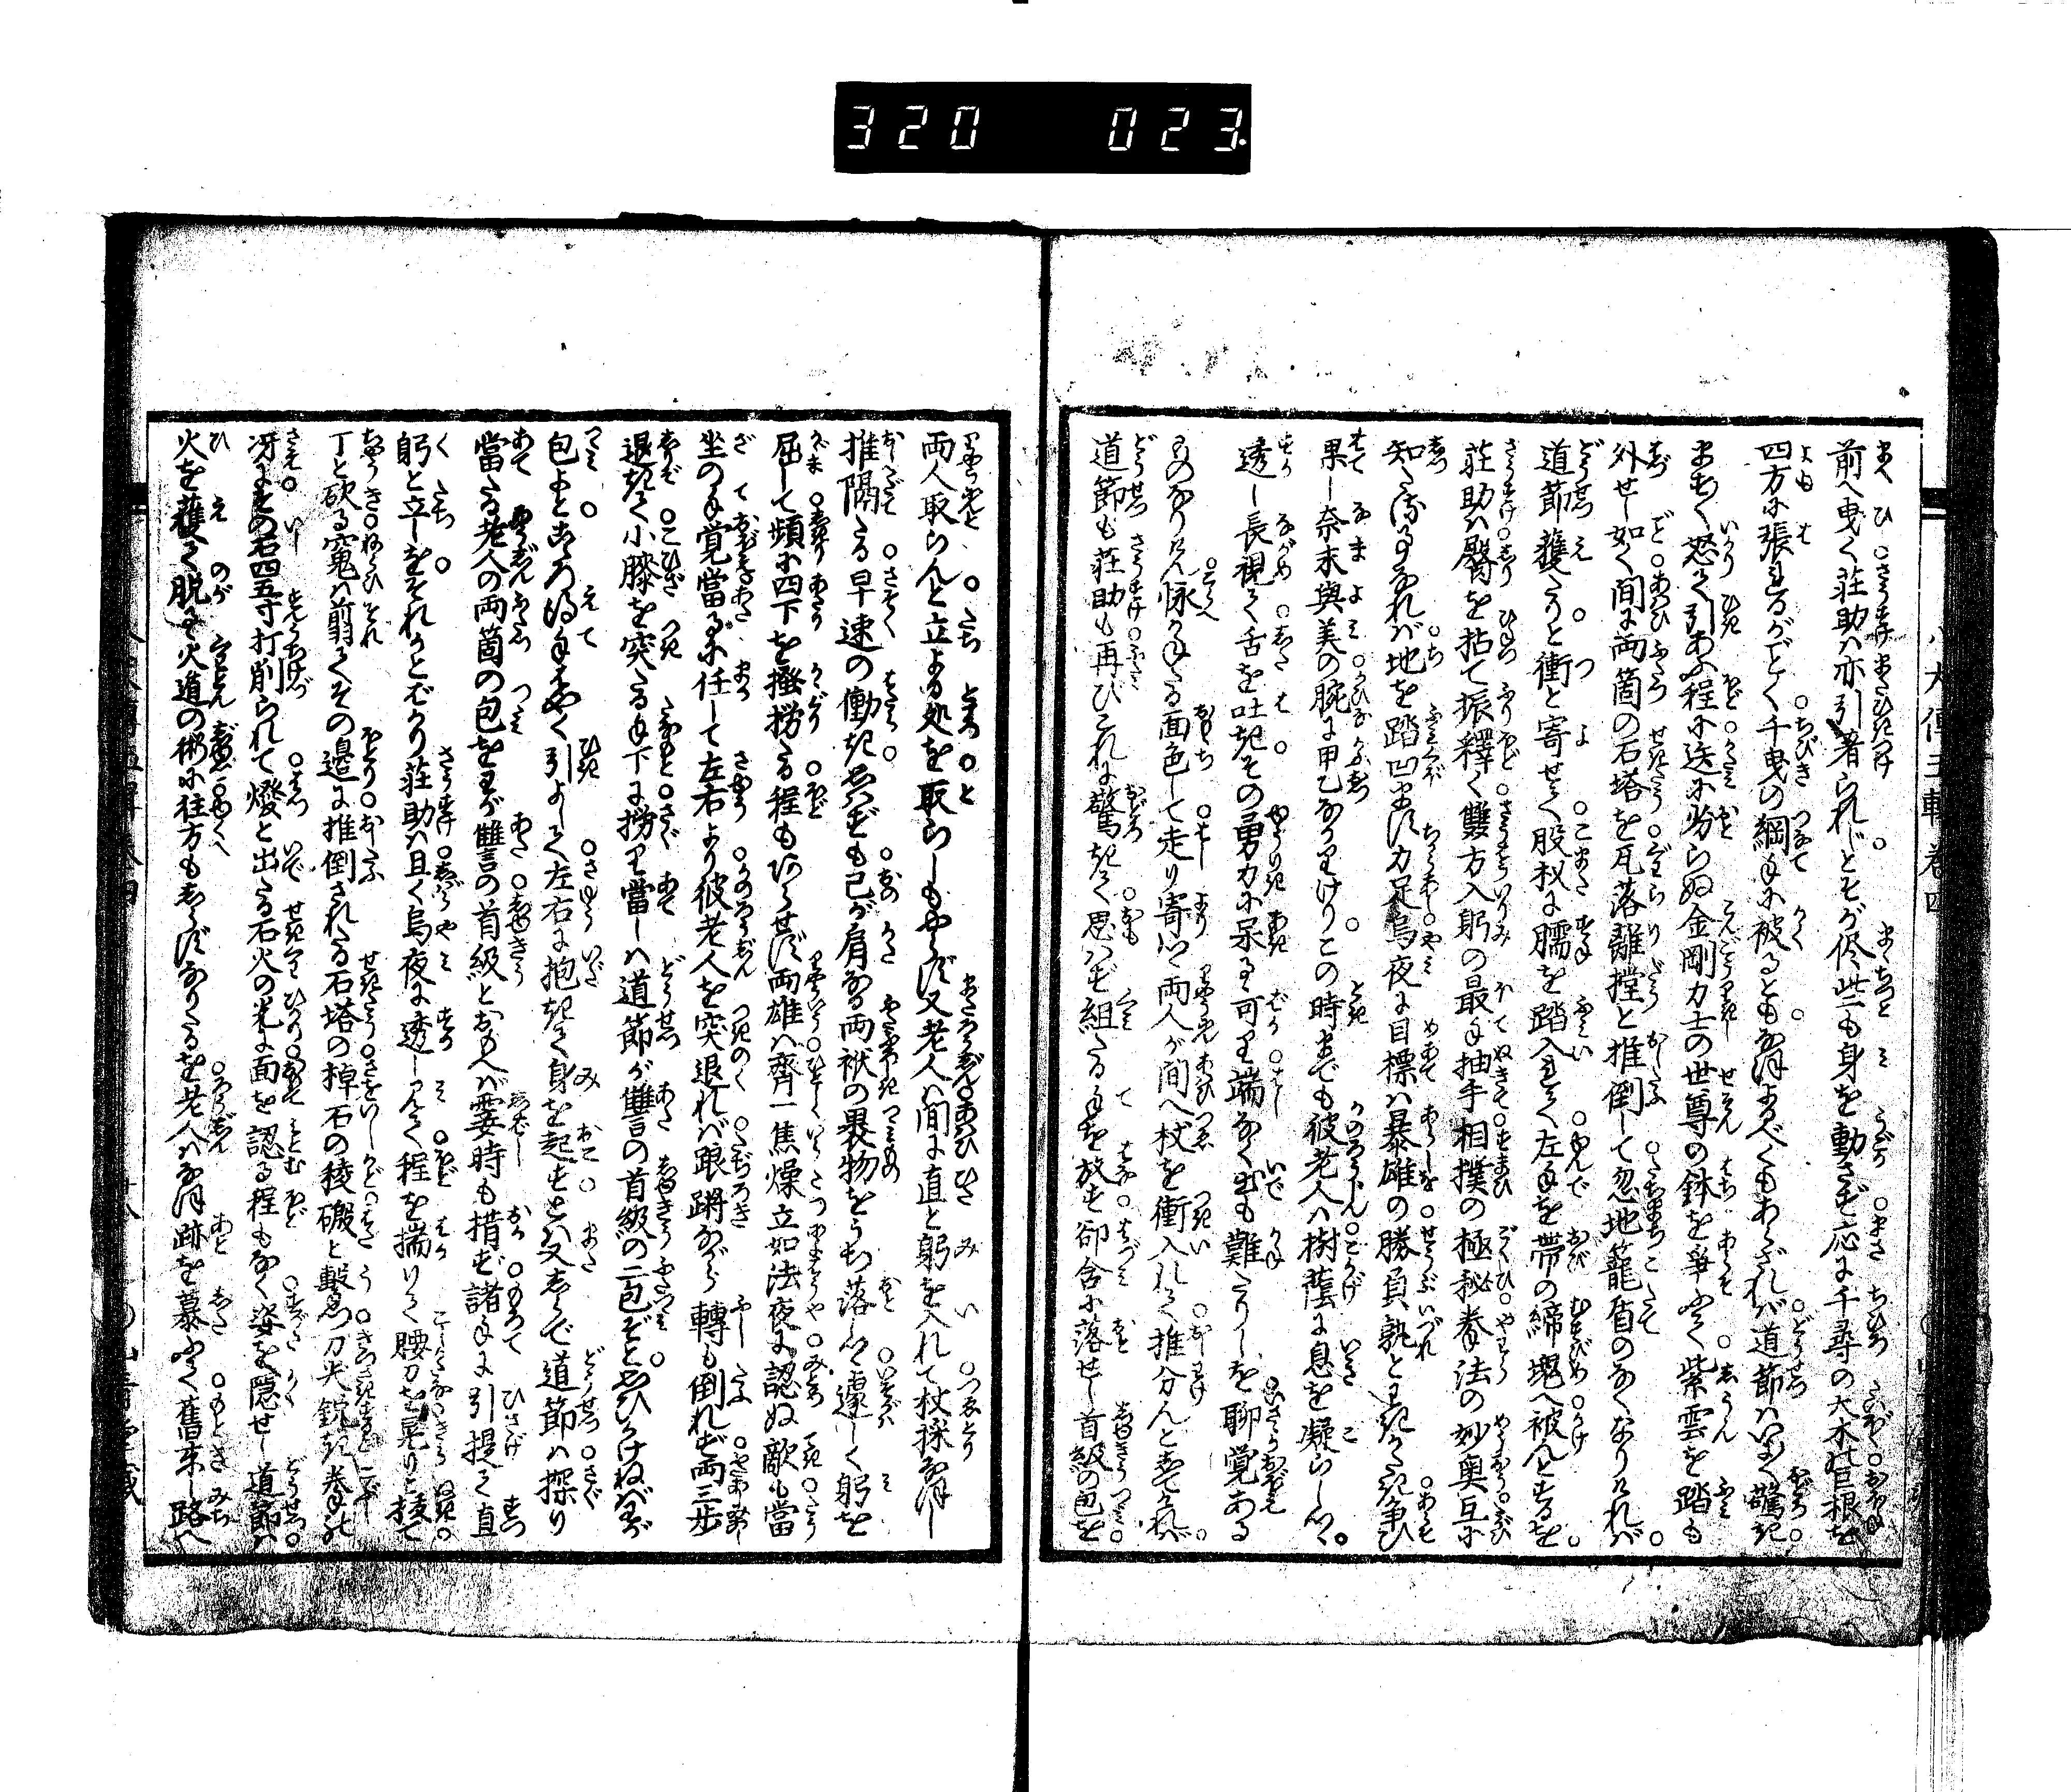 320 023
八犬傳五輯 巻四
前へ曳く荘助ハ亦引著られじとそが侭些も身を動さず応に千尋の大木の巨根を
四方に張れるがごとく千曳の綱手に被るともなほよるべくもあらざれバ道節ハいよ〳〵驚き
ますく怒て引あふ程に迭に劣らぬ金剛力士の世尊の鉢を争ふて紫雲を踏も
外せし如く間に両箇の石塔を瓦落離撲と推倒して忽地籠盾のなくなりけれバ
道節獲たりと衝と寄せて股杈に臑を踏入れて左手を帯の締塊へ被んとするを
荘助ハ臀を拈て振釋く雙方入躬の最手抽手相撲の極秘拳法の妙奥互に
知たる事なれバ地を踏凹ます力足烏夜に目標ハ暴雄の勝負孰とわきがたき争ひ
果し奈末與美の腕に甲乙なかりけりこの時までも彼老人ハ樹蔭に息を凝らしつゝ
透し長視て舌を吐きその勇力に呆るゝ可り端なく出も難たりしを聊覚ある
ものなりけん怺かねたる面色して走り寄つゝ両人が間へ杖を衝入れて推分んとしてけれバ
道節も荘助も再びこれに驚きて思ハず組たる手を放す郤含に落せし首級の包を
両人取らんと立よる処を取らしもやらず又老人ハ間に直と躬を入れて杖採なほし
推隔たる早速の働き思ハずも己が肩なる両袱の裹物をうち落しつゝ遽しく躬を
屈して頻に四下を掻撈る程もあらせず両雄ハ齊一焦燥立如法夜に認ぬ敵も當
坐の手覚當るに任して左右より彼老人を突退れバ踉蹡ながら轉も倒れず両三歩
退きて小膝を突たる手下に撈り當しハ道節が讐言の首級の二包ぞと思ひかけねバわが
包よとこゝろ得手はやく引よして左右に抱きて身を起すとハ又しらで道節ハ探り
當たる老人の両箇の包をわが讐言の首級とおもへバ霎時も措ず諸手に引提て直
躬と立しをそれかとばかり荘助ハ且く烏夜に透し見て程を揣りて腰刀を晃りと抜て
丁と砍る寃ハ前翳てその邉に推倒されたる石塔の棹石の稜磤と毄る刀尖鋭き拳の
冴にその石四五寸打削られて燈と出たる石火の光に面を認る程もなく姿を隠せし道節ハ
火を獲て脱るゝ火道の術に往方もしらずなりたるを老人ハなほ跡を慕ふて舊来し路へ